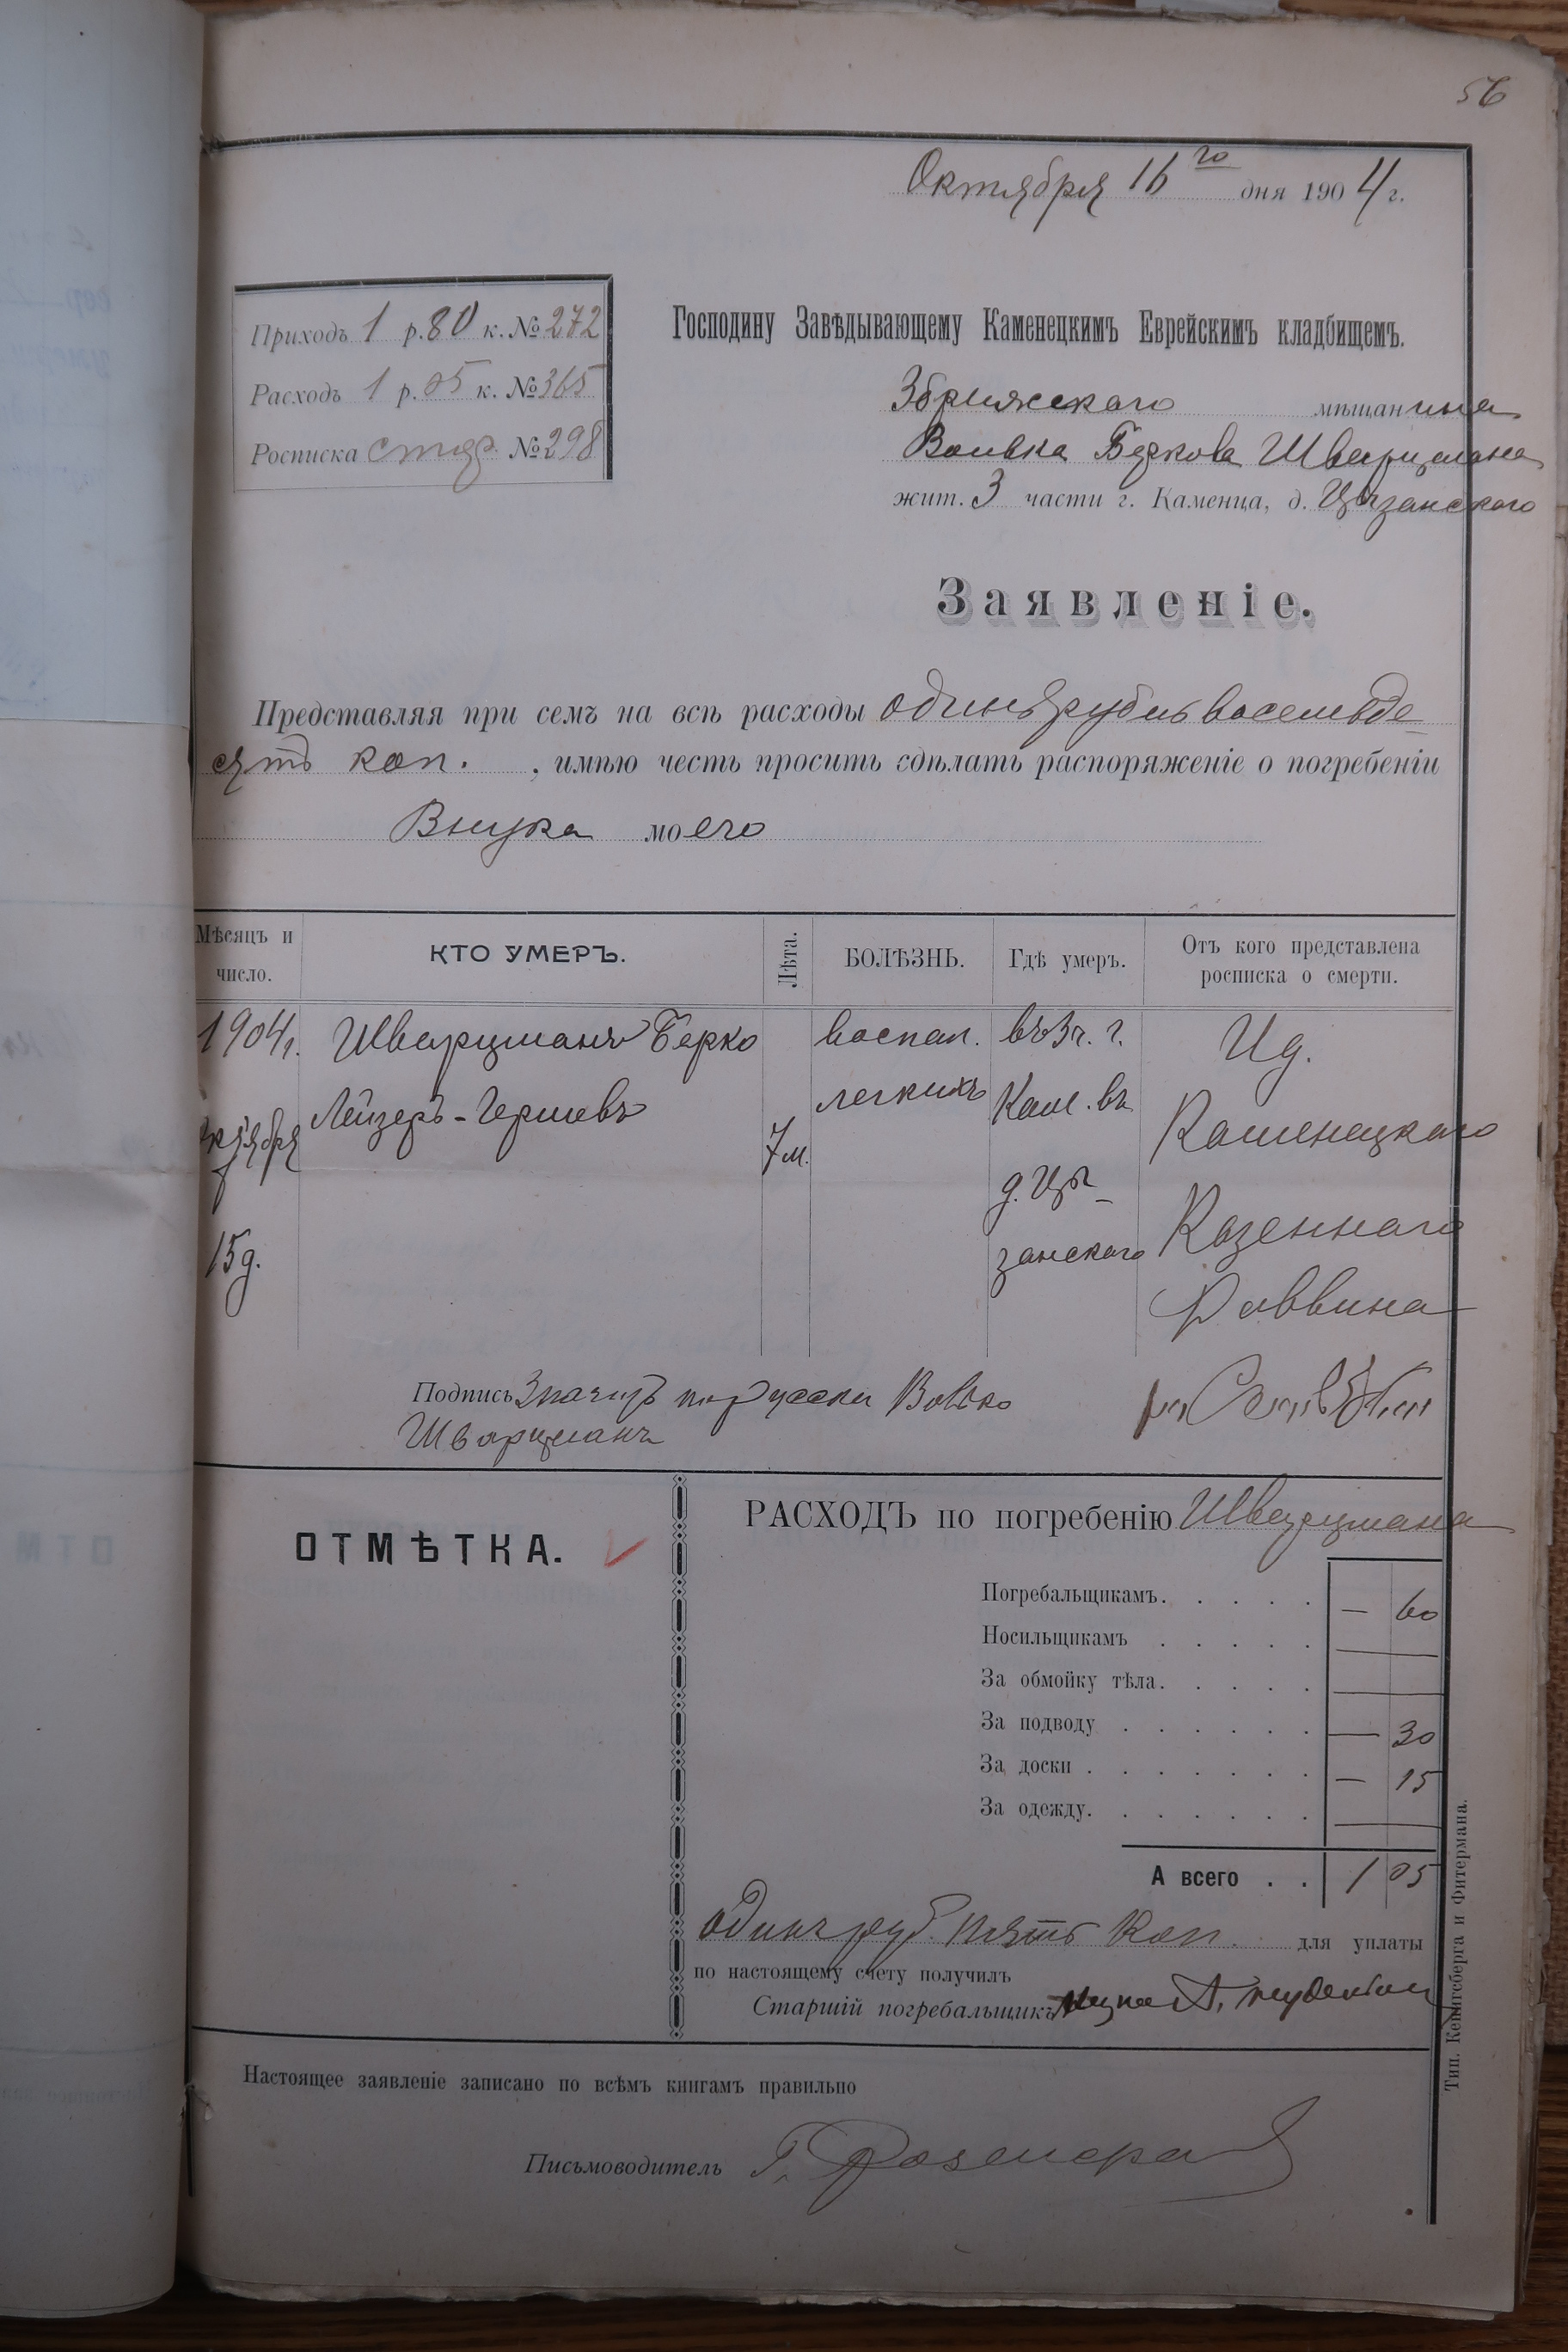 56
Октября 16го дня 1904 г.
Приходъ 1 р. 80 к. № 272
Расходъ 1 р. 05 к. № 365
Росписка стар. № 298
Господину Завѣдывающему Каменецкимъ Еврейскимъ кладбищемъ.
Збрижскаго мѣщанина
Вольвка Беркова Шварцмана
жит. 3 части г. Каменца, д. Цызанского
Заявленіе.
Представляя при семъ на всѣ расходы одинъ рубль восемьде-
сятъ коп. , имѣю честь просить сдѣлать распоряженіе о погребеніи
Внука моего
Мѣсяцъ и число. КТО УМЕРЪ. Лѣта. БОЛѢЗНЬ. Гдѣ умеръ. Отъ кого представлена росписка о смерти.
1904г. Шварцманъ Берко воспал. въ 3 ч. г. Ид.
октября Лейзеръ-Гершевъ 7 м. легкихъ Кам. въ Каменецкаго
15 д. д. Цы- занского Казеннаго
Раввина
Подпись Значитъ по русски Вовко
Шварцманъ
ОТМѢТКА.
РАСХОДЪ по погребенію Шварцмана
Погребальщикамъ. . . . . — 60
Носильщикамъ . . . . . —
За обмойку тѣла. . . . . —
За подводу . . . . . . — 30
За доски . . . . . . . — 15
За одежду. . . . . . . —
А всего . . 1 05
Одинъ руб. пять коп. для уплаты
по настоящему счету получилъ
Старшій погребальщикъ
Настоящее заявленіе записано по всѣмъ книгамъ правильно
Письмоводитель Г.
Тип. Кенигсберга и Фитермана.